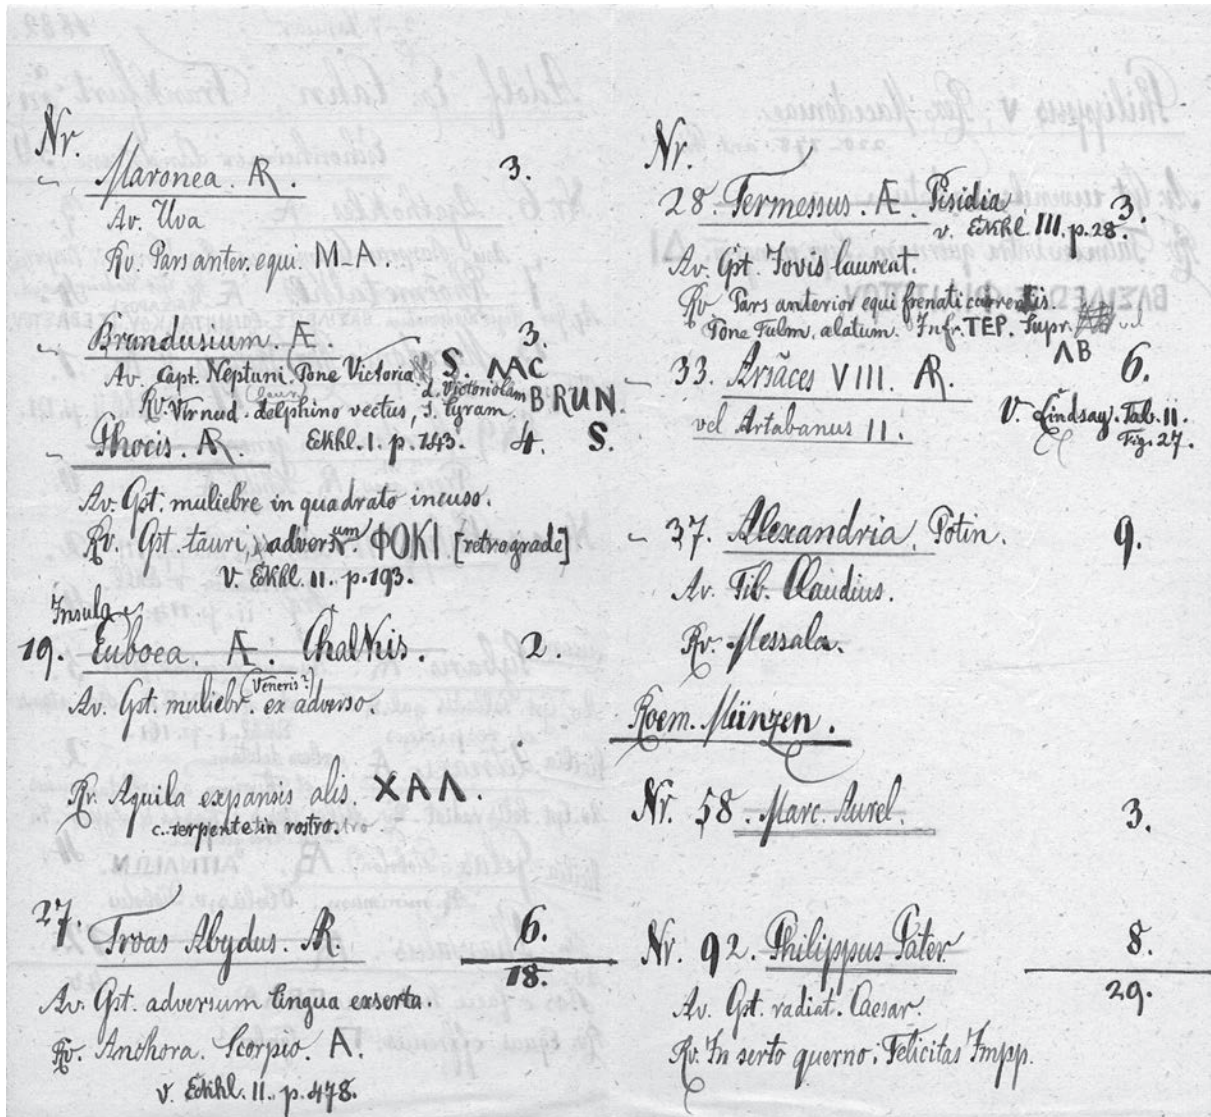 Nr.
Maronea. AR. 3.
Av. Uva
Rv. Pars anter. equi. M-A.
Brundusium. Æ. 3.
Av. Capt. Neptuni. Pone Victoria. S. ΛΑC
Rv. Vir nud. delphino vectus, d. Victoriolam s. lyram. BRUN.
Phocis. AR. Ekhl. I. p. 143. 4. S.
Av. Cpt. muliebre in quadrato incuso.
Rv. Cpt. tauri, adversum ΦΟΚΙ [retrograde]
V. Ekhl. II. p. 193.
Insula
19. Euboea. Æ. Chalkis. 2.
Av. Cpt. muliebr. (Veneris?) ex adverso.
Rv. Aquila expansis alis. ΧΑΛ.
c. serpente in rostro.
27. Troas Abydus. AR. 6.
18.
Av. Cpt. adversum lingua exserta.
Rv. Anchora. Scorpio. A.
v. Ekhl. II. p. 478.
Nr.
28. Termessus. Æ. Pisidia. 3.
v. Ekhl. III. p. 28.
Av. Cpt. Jovis laureat.
Rv Pars anterior equi frenati currentis.
Pone Fulm. alatum. Infr. TEP. Supr.
ΛΒ
33. Arsăces VIII. AR. 6.
vel Artabanus II. V. Lindsay. Tab. II.
Fig. 27.
37. Alexandria. Potin. 9.
Av. Tib. Claudius.
Rv. Messala.
Roem. Münzen.
Nr. 58. Marc. Aurel. 3.
Nr. 92. Philippus Pater. 8.
29.
Av. Cpt. radiat. Caesar.
Rv. In serto querno: Felicitas Impp.